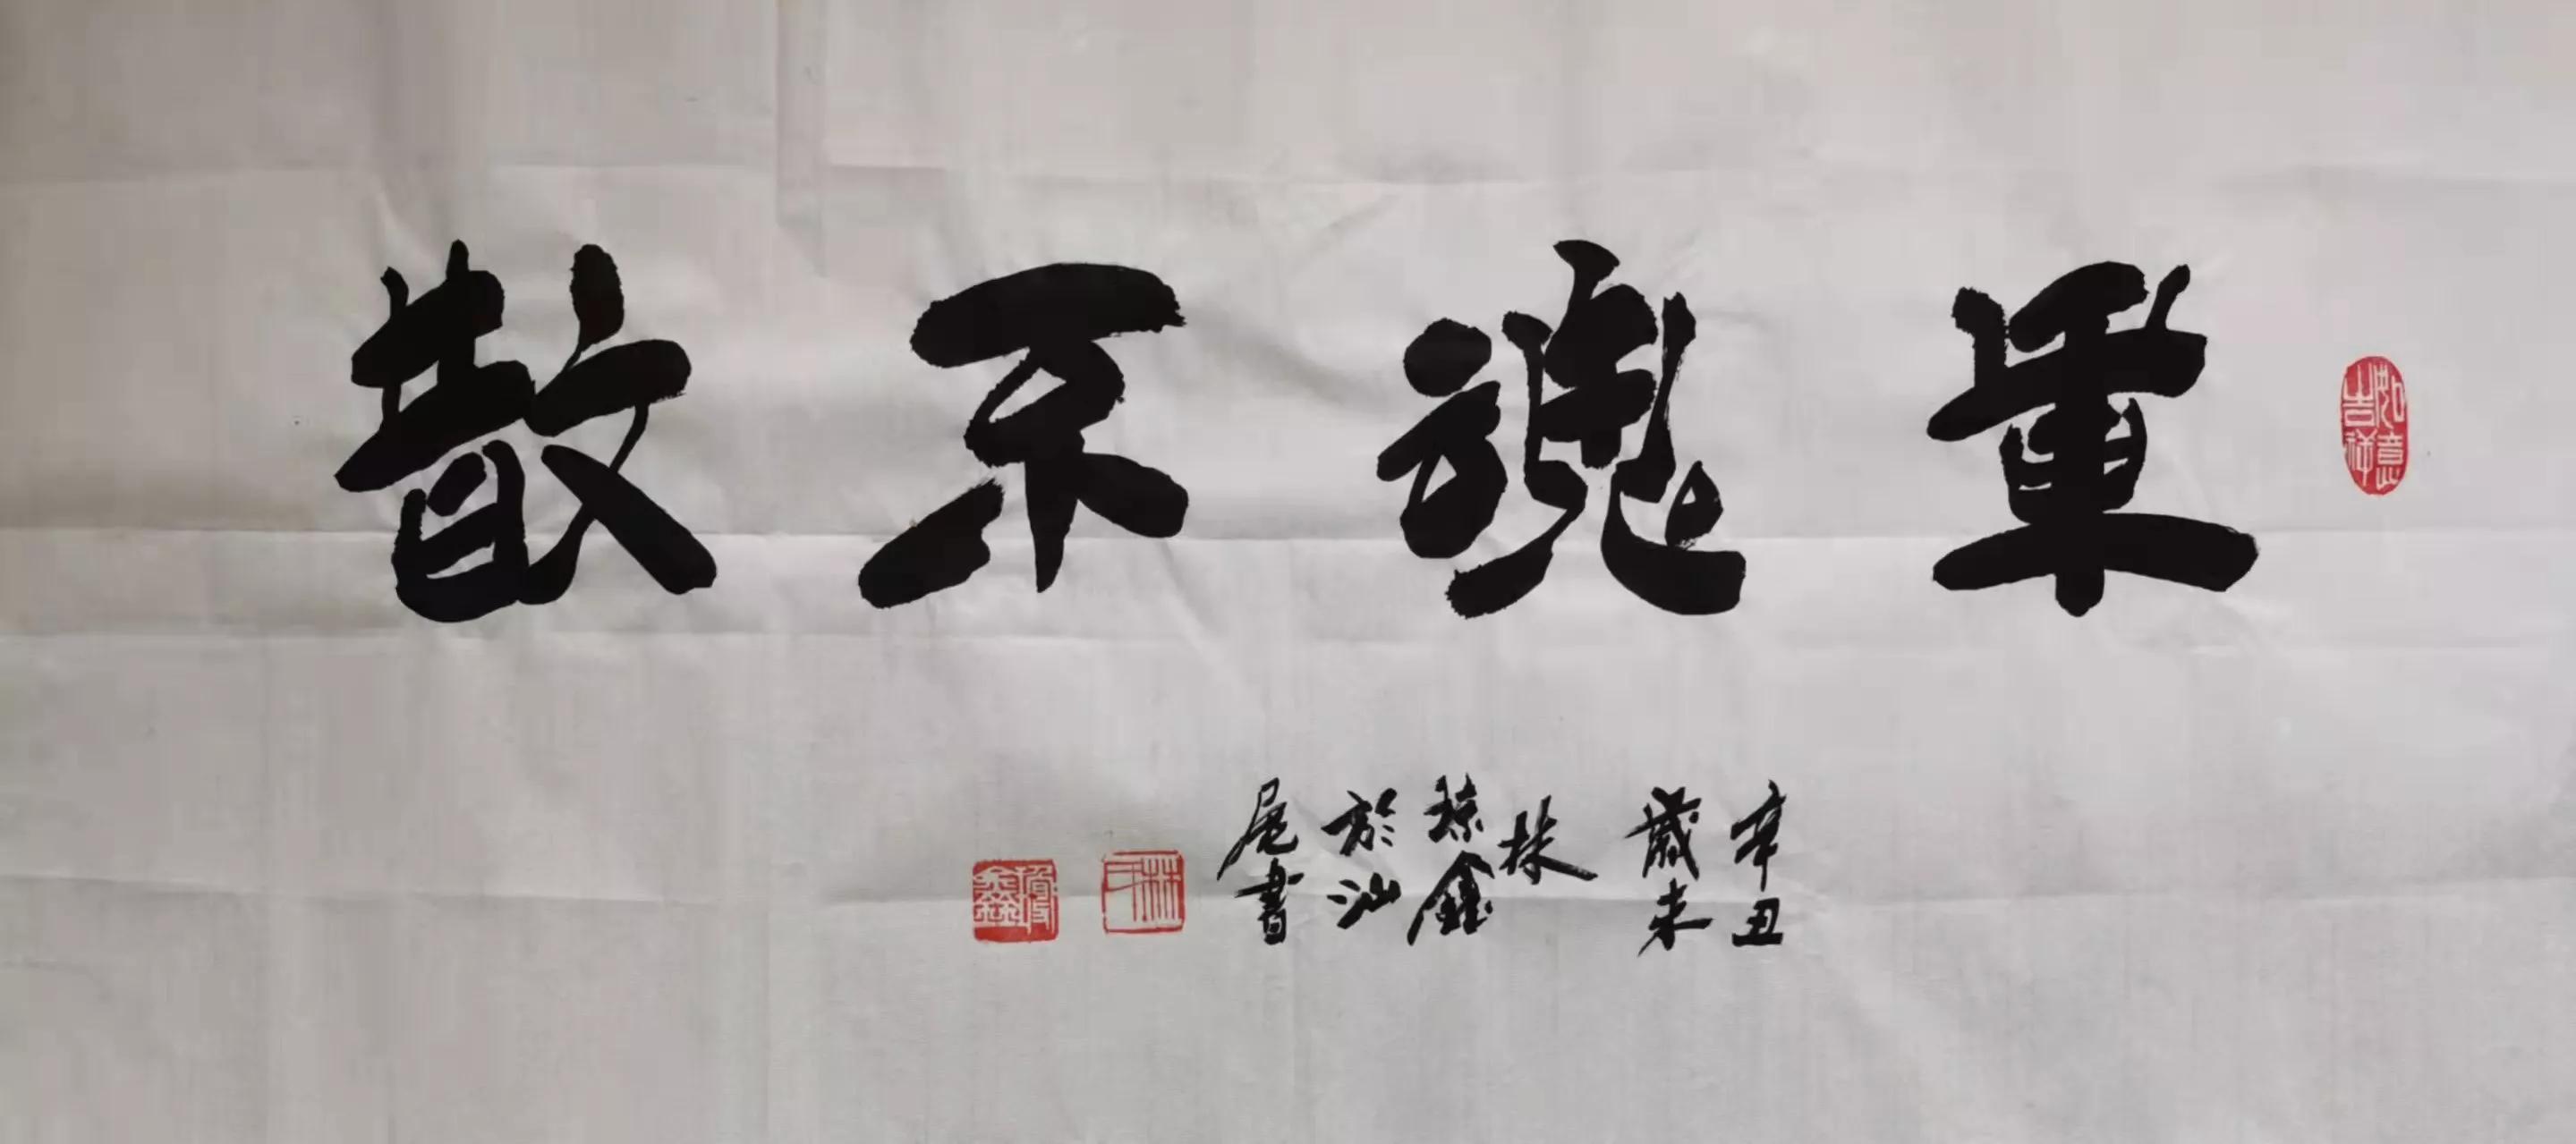 軍魂不散
辛丑
歲末
林
琼鑫
於汕
尾書
如意吉祥
林
鑫